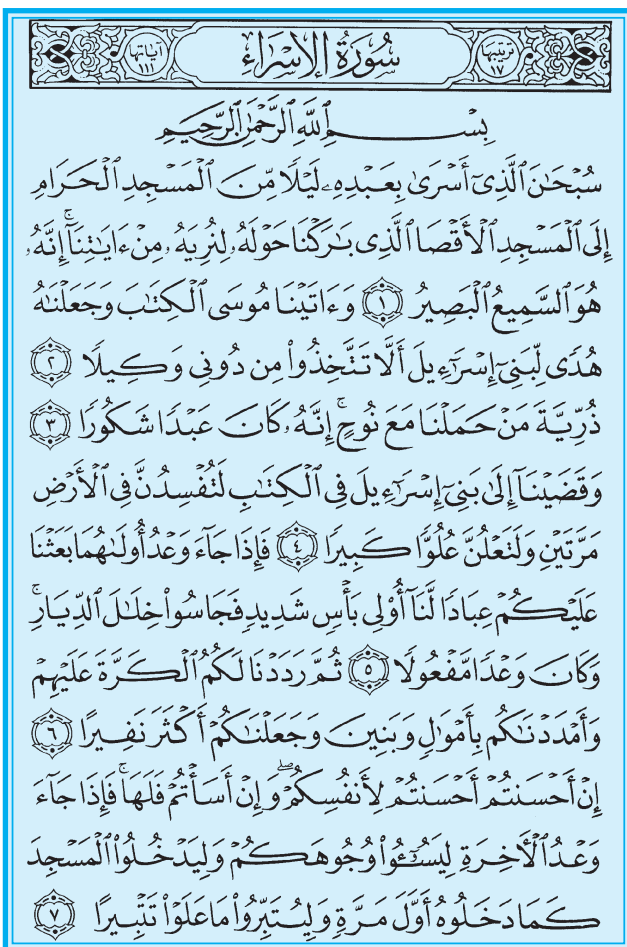 ترتيبها ١٧ سُورَةُ الإِسْرَاءِ آياتها ١١١
بِسْمِ ٱللَّهِ ٱلرَّحْمَٰنِ ٱلرَّحِيمِ
سُبْحَٰنَ ٱلَّذِىٓ أَسْرَىٰ بِعَبْدِهِۦ لَيْلًا مِّنَ ٱلْمَسْجِدِ ٱلْحَرَامِ
إِلَى ٱلْمَسْجِدِ ٱلْأَقْصَا ٱلَّذِى بَٰرَكْنَا حَوْلَهُۥ لِنُرِيَهُۥ مِنْ ءَايَٰتِنَآ ۚ إِنَّهُۥ
هُوَ ٱلسَّمِيعُ ٱلْبَصِيرُ ١ وَءَاتَيْنَا مُوسَى ٱلْكِتَٰبَ وَجَعَلْنَٰهُ
هُدًى لِّبَنِىٓ إِسْرَٰٓءِيلَ أَلَّا تَتَّخِذُوا۟ مِن دُونِى وَكِيلًا ٢
ذُرِّيَّةَ مَنْ حَمَلْنَا مَعَ نُوحٍ ۚ إِنَّهُۥ كَانَ عَبْدًا شَكُورًا ٣
وَقَضَيْنَآ إِلَىٰ بَنِىٓ إِسْرَٰٓءِيلَ فِى ٱلْكِتَٰبِ لَتُفْسِدُنَّ فِى ٱلْأَرْضِ
مَرَّتَيْنِ وَلَتَعْلُنَّ عُلُوًّا كَبِيرًا ٤ فَإِذَا جَآءَ وَعْدُ أُولَىٰهُمَا بَعَثْنَا
عَلَيْكُمْ عِبَادًا لَّنَآ أُو۟لِى بَأْسٍ شَدِيدٍ فَجَاسُوا۟ خِلَٰلَ ٱلدِّيَارِ ۚ
وَكَانَ وَعْدًا مَّفْعُولًا ٥ ثُمَّ رَدَدْنَا لَكُمُ ٱلْكَرَّةَ عَلَيْهِمْ
وَأَمْدَدْنَٰكُم بِأَمْوَٰلٍ وَبَنِينَ وَجَعَلْنَٰكُمْ أَكْثَرَ نَفِيرًا ٦
إِنْ أَحْسَنتُمْ أَحْسَنتُمْ لِأَنفُسِكُمْ ۖ وَإِنْ أَسَأْتُمْ فَلَهَا ۚ فَإِذَا جَآءَ
وَعْدُ ٱلْأَخِرَةِ لِيَسُـۥٓـُٔوا۟ وُجُوهَكُمْ وَلِيَدْخُلُوا۟ ٱلْمَسْجِدَ
كَمَا دَخَلُوهُ أَوَّلَ مَرَّةٍ وَلِيُتَبِّرُوا۟ مَا عَلَوْا۟ تَتْبِيرًا ٧